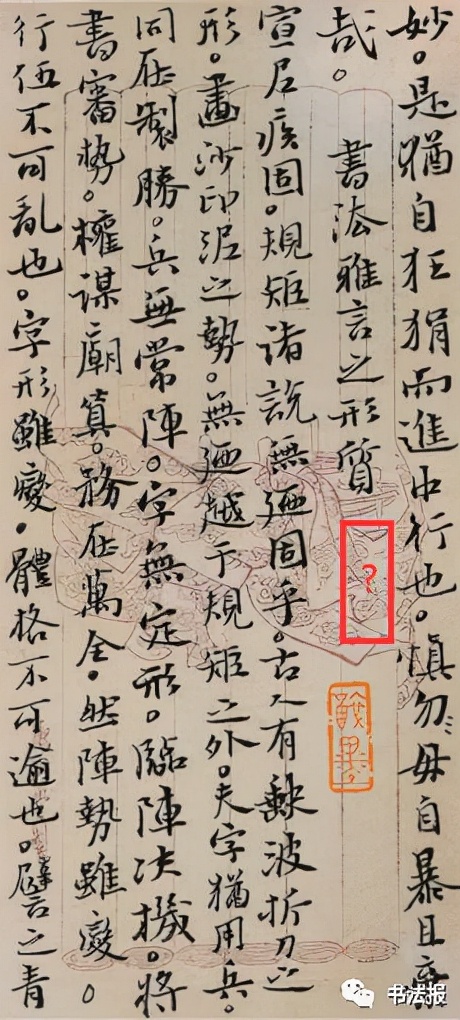 妙。是猶自狂狷而進中行也。慎勿毋自暴且棄
哉。
書法雅言之形質
?
宣尼疾固。規矩諸說無廼固乎。古人有缺波折刀之
形。畫沙印泥之勢。無廼越于規矩之外。夫字猶用兵。
同在製勝。兵無常陣。字無定形。臨陣决機。將
書審勢。權謀廟筭。務在萬全。然陣勢雖變。
行伍不可亂也。字形雖變。體格不可逾也。譬之青
书法报